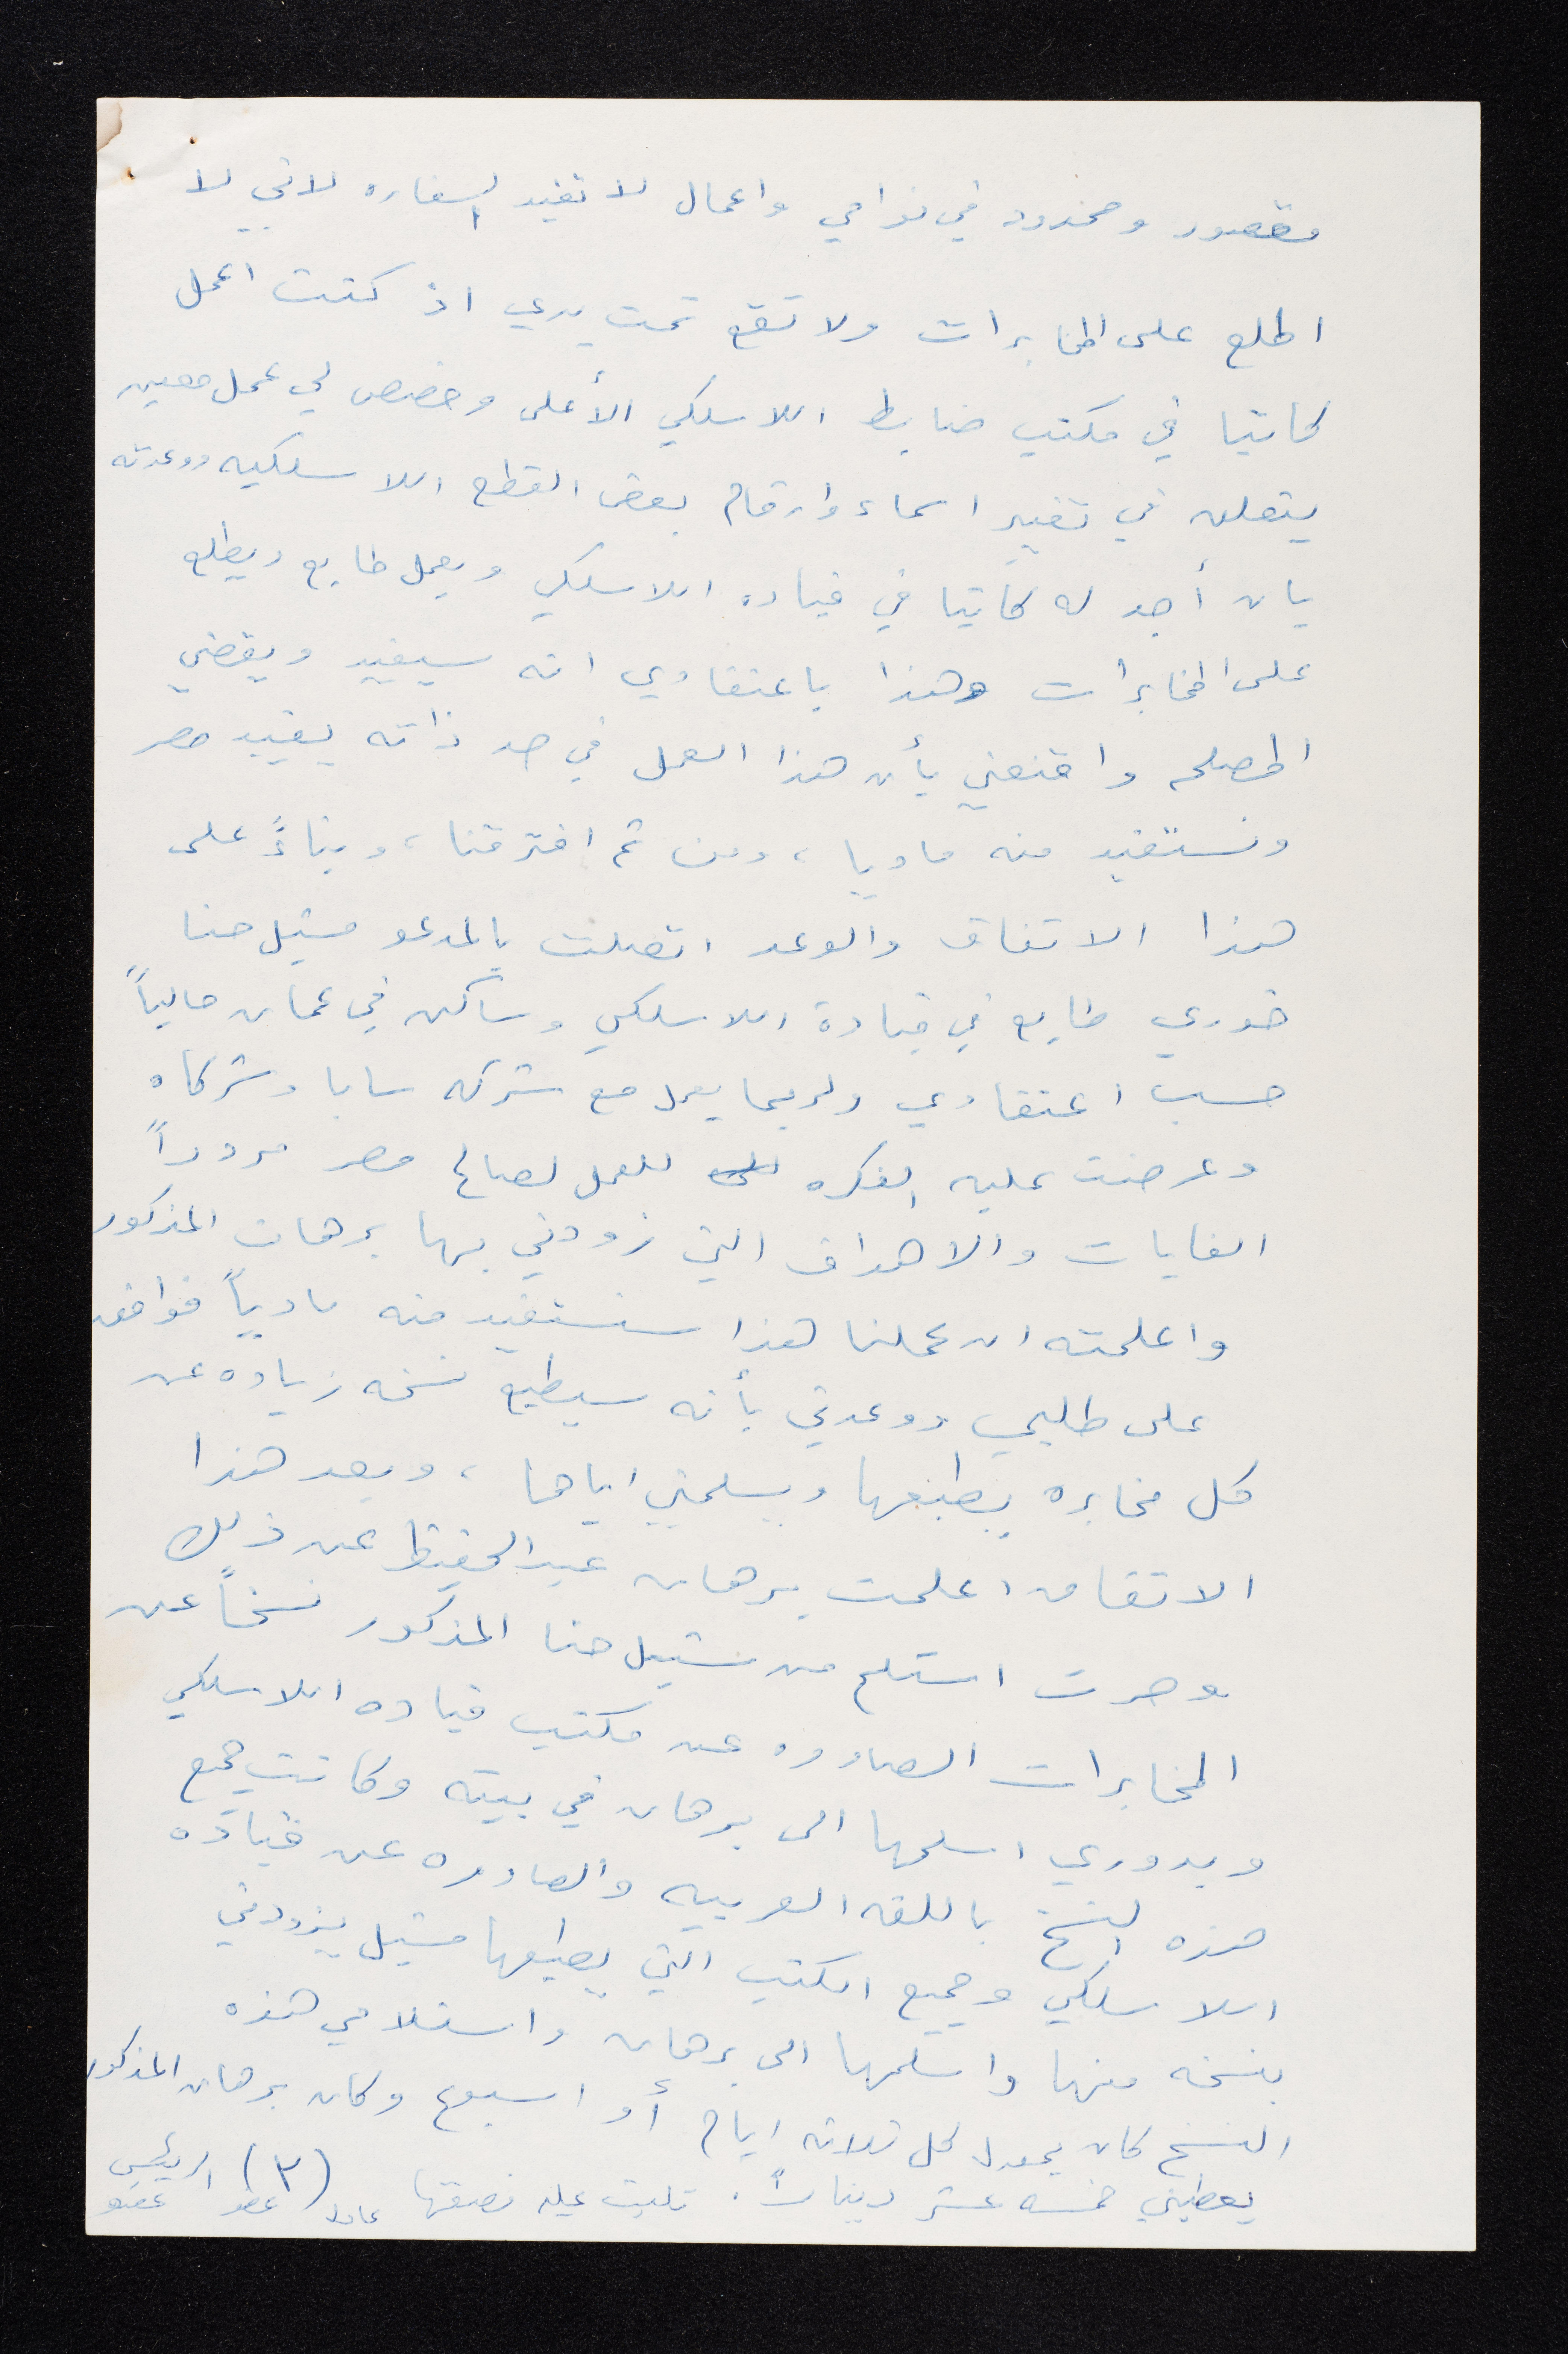 مقصور ومحدود في نواحي واعمال لا تفيد السفاره لاني لا
اطلع على المخابرات ولا تقع تحت يدي اذ كنت اعمل
كاتبا في مكتب ضابط اللاسلكي الأعلى وخصص لي عمل معين
يتعلق في تغيير اسماء وارقام بعض القطع اللاسلكيه ووعدته
بان أجد له كاتبا في قياده اللاسلكي ويعمل طابع ويطلع
على المخابرات وهذا باعتقادي انه سيفيد ويقضي
المصلحه واقنعني بأن هذا العمل في حد ذاته يفيد مصر
ونستفيد منه ماديا ، ومن ثم افترقنا ، وبناءً على
هذا الاتفاق والوعد اتصلت بالمدعو مشيل حنا
خوري طابع في قيادة اللاسلكي وساكن في عمان حالياً
حسب اعتقادي ولربما يعمل مع شركه سابا وشركاه
وعرضت عليه الفكره للعمل لصالح مصر مردداً
الغايات والاهداف التي زودني بها برهان المذكور
واعلمته ان عملنا هذا سنستفيد منه مادياً فوافق
على طلبي ووعدني بأنه سيطبع نسخه زياده عن
كل مخابره يطبعها ويسلمني اياها ، وبعد هذا
الاتفاق اعلمت برهان عبدالحفيظ عن ذلك
وصرت استلم من مشيل حنا المذكور نسخاً عن
المخابرات الصادره عن مكتب قياده اللاسلكي
وبدوري اسلمها الى برهان في بيته وكانت جميع
هذه النسخ باللغه العربيه والصادره عن قياده
اللاسلكي وجميع الكتب التي يطبعها مشيل يزودني
بنسخه منها واسلمها الى برهان واستلامي هذه
النسخ كان بمعدل كل ثلاثه ايام أو اسبوع وكان برهان المذكور
يعطيني خمسه عشر ديناراً . تليت عليه فصدقها (٣) الرئيس
عضو عضو